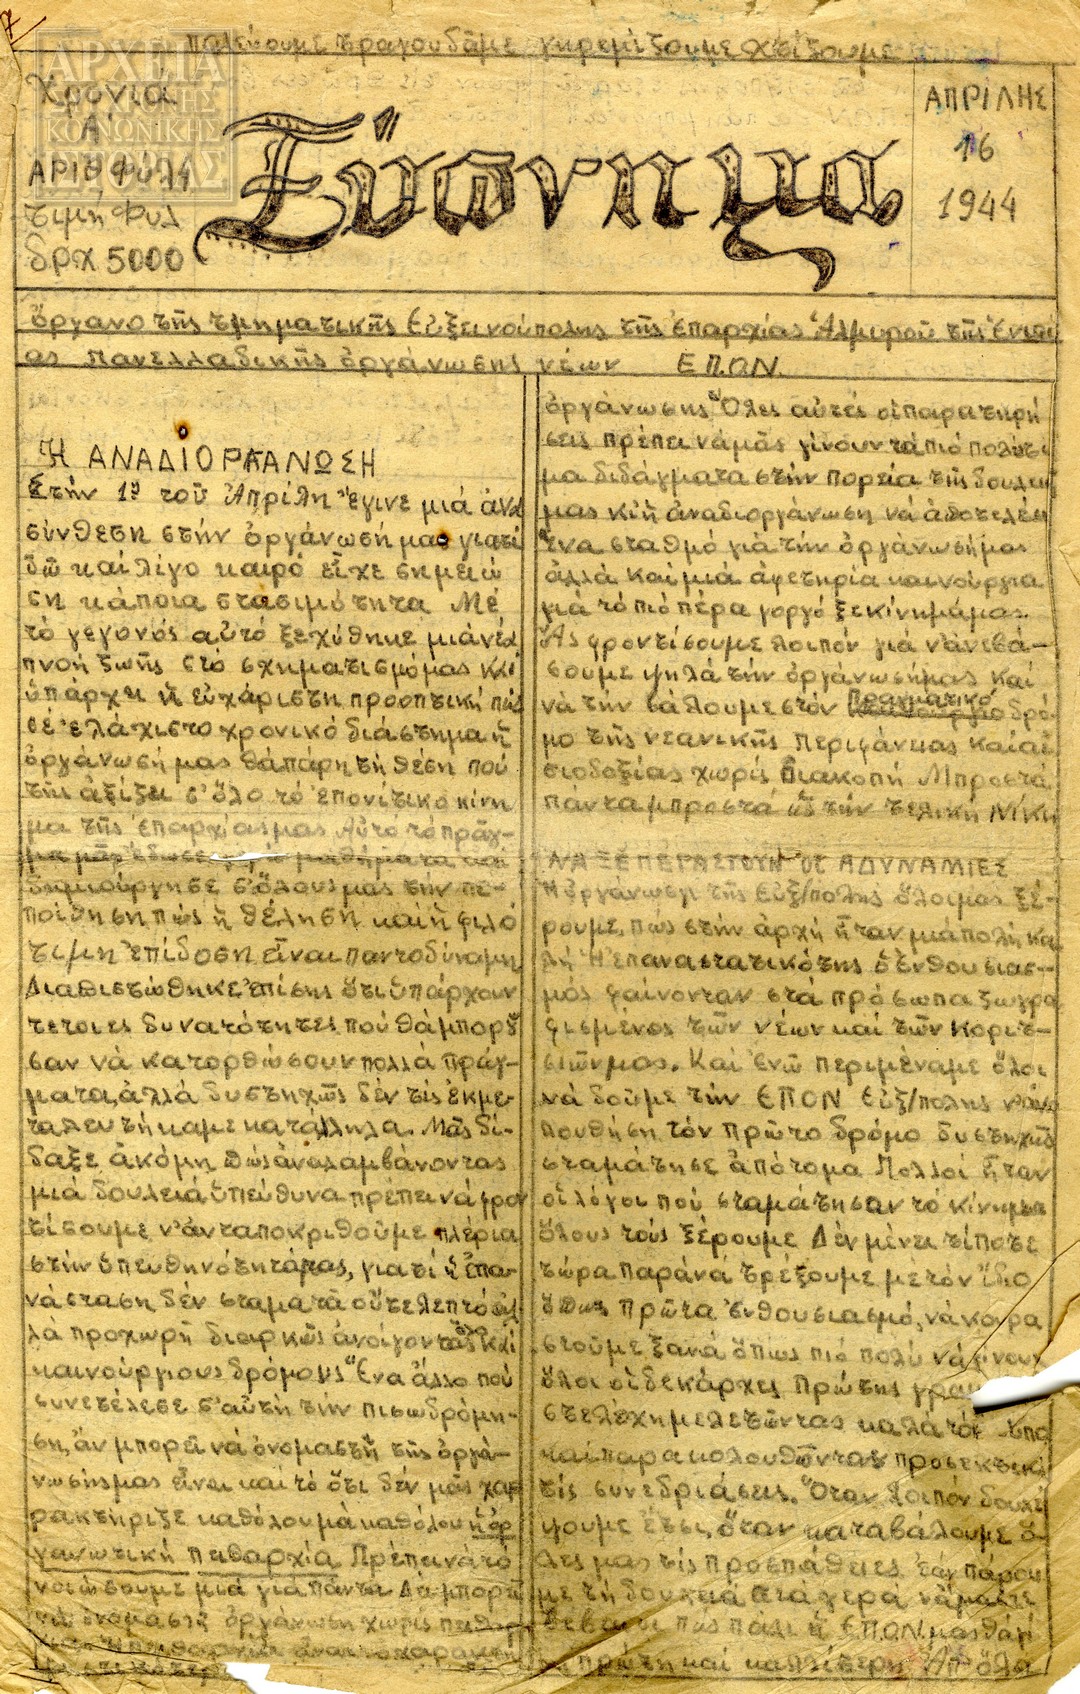 πολεμουμε τραγουδάμε γκρεμίζουμε χτίζουμε
ΑΡΧΕΙΑ
ΣΥΓΧΡΟΝΗΣ
ΚΟΙΝΩΝΙΚΗΣ
ΙΣΤΟΡΙΑΣ
Χρόνια
Α'
ΑΡΙΘ Φύλ 4
τιμή Φυλ
δρχ 5000
Ξύπνημα
ΑΠΡΙΛΗΣ
16
1944
ὄργανο τῆς τμηματικῆς Εὐξεινούπολης τῆς ἐπαρχίας Ἁλμυροῦ τῆς Ἑνιαί
ας πανελλαδικῆς ὀργάνωσης νέων ΕΠΟΝ
Ἡ ΑΝΑΔΙΟΡΓΑΝΩΣΗ
Στήν 1η τοῦ Ἀπρίλη ἔγινε μιά ἀνα
σύνθεση στήν ὀργάνωσή μας γιατί
ἐδῶ καί λίγο καιρό εἶχε σημειώ
ση κάποια στασιμότητα Μέ
τό γεγονός αὐτό ξεχύθηκε μιά νέα
πνοή ζωῆς στό σχηματισμό μας καί
ὑπάρχει ἡ εὐχάριστη προοπτική πώς
σέ ἐλάχιστο χρονικό διάστημα ἡ
ὀργάνωσή μας θά πάρη τή θέση πού
τῆς ἀξίζει σ' ὅλο τό ἐπονίτικο κίνη
μα τῆς ἐπαρχίας μας Αὐτό τό πρᾶγ-
μα μᾶς ἔδωσε μαθήματα καί
δημιούργησε σ' ὅλους μας τήν πε-
ποίθηση πώς ἡ θέληση καί ἡ φιλό
τιμη ἐπίδοση εἶναι παντοδύναμη
Διαπιστώθηκε ἐπίσης ὅτι ὑπάρχουν
τέτοιες δυνατότητες πού θά μπορού
σαν νά κατορθώσουν πολλά πράγ-
ματα, ἀλλά δυστηχῶς δέν τίς ἐκμε-
ταλευτήκαμε κατάλληλα. Μᾶς δί-
δαξε ἀκόμη πώς ἀναλαμβάνοντας
μιά δουλειά ὑπεύθυνα πρέπει νά φρον
τίσουμε ν' ἀνταποκριθοῦμε πλέρια
στήν ὑπευθηνότητά μας, γιατί ἡ ἐπα-
νάσταση δέν σταματᾶ οὔτε λεπτό ἀλ
λά προχωρῆ διαρκῶς ἀνοίγοντας ὅλο καί
καινούργιους δρόμους Ἕνα ἄλλο πού
συνετέλεσε σ' αὐτή τήν πισωδρόμη-
ση, ἄν μπορεῖ νά ὀνομαστῆ τῆς ὀργά-
νωσής μας εἶναι καί τό ὅτι δέν μᾶς χαρ
ρακτήριζε καθόλου μά καθόλου ἡ ὀρ
γανωτική πειθαρχία Πρέπει νά τό
νοιώσουμε μιά γιά πάντα Δέ μπορεῖ
νά ὀνομαστῆ ὀργάνωση χωρίς πειθαρ
χία Ἡ πειθαρχία εἶναι τό χαραχτη
ὀργάνωσης Ὅλες αὐτές οἱ παρατηρή
σεις πρέπει νά μᾶς γίνουν τά πιό πολύτι
μα διδάγματα στήν πορεία τῆς δουλειᾶς
μας κι' ἡ ἀναδιοργάνωση νά ἀποτελέση
ἕνα σταθμό γιά τήν ὀργάνωσή μας
ἀλλά καί μιά ἀφετηρία καινούργια
γιά τό πιό πέρα γοργό ξεκίνημά μας.
Ἄς φροντίσουμε λοιπόν γιά ν' ἀνεβά-
σουμε ψηλά τήν ὀργάνωσή μας καί
νά τήν βάλουμε στόν πραγματικό δρό
μο τῆς νεανικῆς περιφάνειας καί αἰ
σιοδοξίας χωρίς διακοπή Μπροστά
πάντα μπροστά ὥς τήν τελική Νίκη
ΝΑ ΞΕΠΕΡΑΣΤΟΥΝ ΟΙ ΑΔΥΝΑΜΙΕΣ
Ἡ ὀργάνωση τῆς Εὐξ/πολης ὅλοι μας ξέ-
ρουμε, πώς στήν ἀρχή ἦταν μιά πολή κα
λή Ἡ ἐπαναστατικότης ὁ ἐνθουσιασ-
μός φαίνονταν στά πρόσωπα ζωγρα
φισμένος τῶν νέων καί τῶν κοριτ-
σιῶν μας. Καί ἐνῶ περιμέναμε ὅλοι
νά δοῦμε τήν ΕΠΟΝ Εὐξ/πολης
πουθήση τόν πρῶτο δρόμο δυστηχῶς
σταμάτησε ἀπότομα Πολλοί ἦταν
οἱ λόγοι πού σταμάτησαν τό κίνημα
ὅλους τούς ξέρουμε Δέν μένει τίποτε
τώρα παρά νά τρέξουμε μέ τόν ἴδιο
ὅπως πρῶτα ἐνθουσιασμό, νά κουρα
στοῦμε ξανά ὅπως πιό πολύ νά γίνουν
ὅλοι οἱ δεκάρχες πρώτης γραμ
στελέχη μελετῶντας καλά τόν τύπο
καί παρακολουθῶντας προσεκτικά
τίς συνεδριάσεις. Ὅταν λοιπόν δουλέ
ψουμε ἔτσι, ὅταν καταβάλουμε ὅ-
λες μας τίς προσπάθειες τάν πάρου
με τή δουλειά στά γερά νἄμαστε
βέβαιοι πώς πάλι ἡ ΕΠΟΝ μας θἆναι
ἡ πρώτη καί καλλίτερη Ἀπ' ὅλα